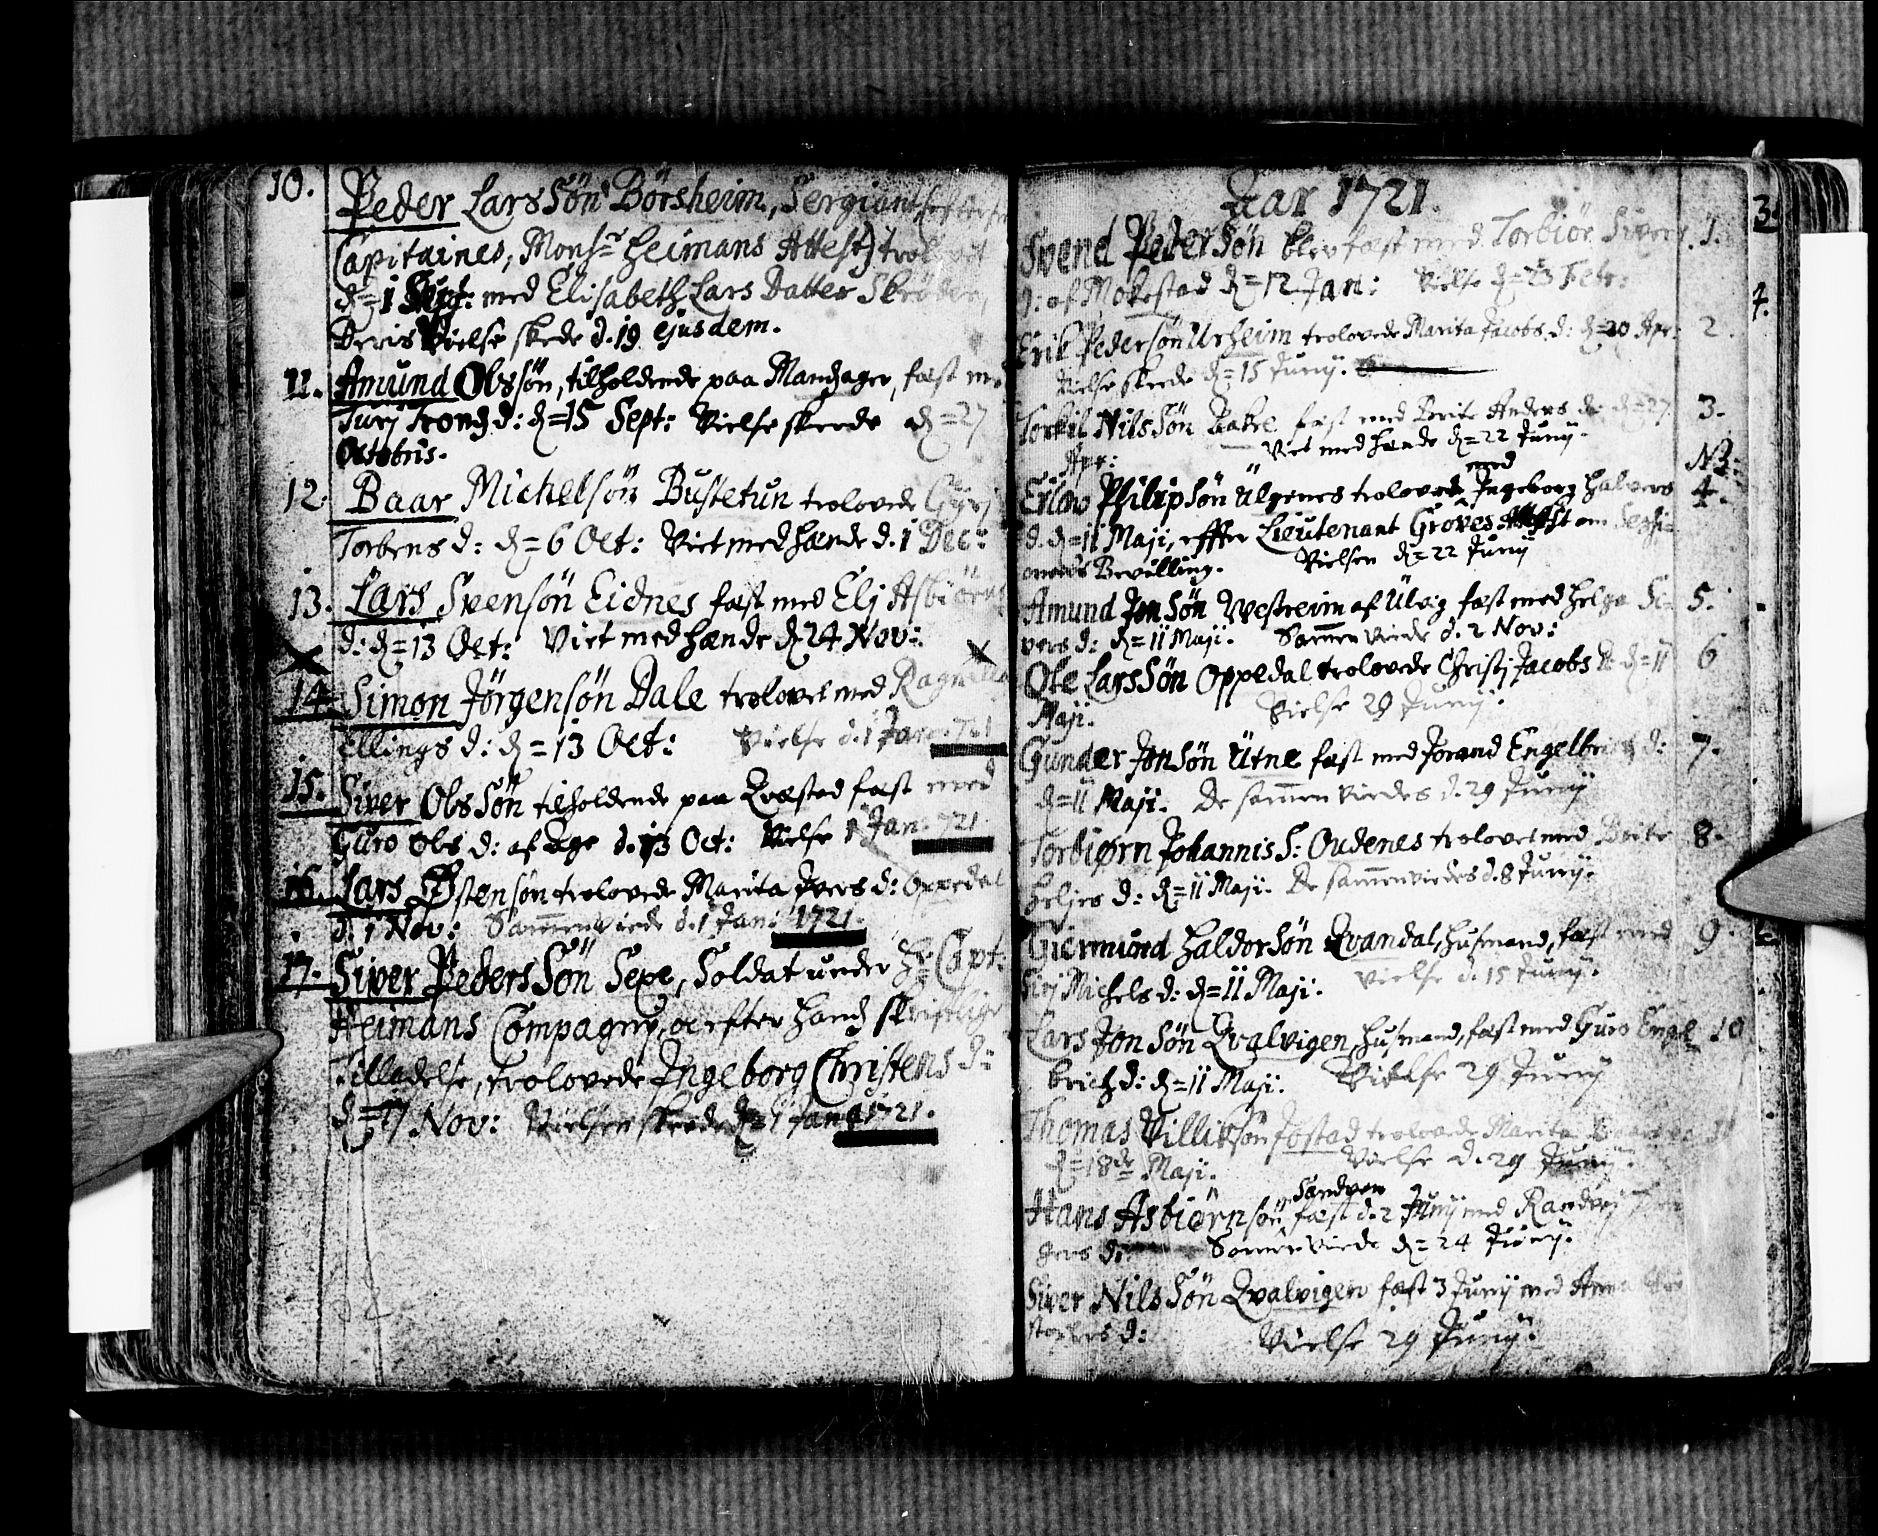 10. Peder LarsSøn Børsheim, Sergiant,
Capitaines, Monsr Heimans Attest) trolovit
d= 1 Sept: med Elisabeth Lars Datter
Deris Vielse skede d. 19 ejusdem.
11. Amund Olssøn, tilholdende paa Mandzager, fæst med
Turj Tronds d: d=15 Sept: Vielse skeede d=27
Octobris.
12. Baar Michelsøn Bustetun trolovede Gurj
Torbens d: d=6 Oct: Viet med hænde d. 1 Dec:
13. Lars Svensøn Eidnes fæst med Elj Asbiørns
d: d=13 Oct: Viet med hænde d. 24 Nov:
14. Simon Jørgensøn Dale trolovet med
Ellings d: d=13 Oct: Vielse d. 1 Jan: 721
15. Siver OlsSøn tilholdende paa Qvæstad fæst med
Guro Ols d: af Age d. 13 Oct: Vielse 1 Jan. 721.
16. Lars Østensøn trolovede Marita Ivers d: Oppedal
d. 1 Nov: Sammenviede d. 1 Jan: 1721.
17. Siver PedersSøn Sexe, Soldat under Hr Capt:
Heimans Compagny, oc efter hands skriftlige
Tilladelse, trolovede Ingeborg Christens d:
d=17 Nov: Vielsen skeede d= 1 Jan 1721.
Aar 1721.
Svend PederSøn blev fæst med Torbiør Sivers 1.
d: af Mokestad d=12 Jan: Vielse d=23 Febr:
Erik Pedersøn Urheim trolovede Marita Jacobs. d: d=20 Apr: 2.
Vielse skeede d=15 Junij.
Torkil NilsSøn Bakke fæst med Brite Anders d: d=27 3.
Apr: Viet med hænde d=22 Junij.
NB:
Erlav PhilipSøn Ulgenes trolovet med Ingeborg Halvers 4.
d. d=11 Maji, effter Lieutenant Groves Attest om
Bevilling. Vielsen d=22 Junij
Amund JonSøn Westreim af Ulvig fæst med Helga Si- 5.
vers d: d=11 Maji. Sammenviede d. 2 Nov:
Ole LarsSøn Oppedal trolovede Christj Jacobs D: d=11 6
Maji. Vielse 29 Junij.
Gunder JonSøn Utne fæst med Jorand Engelbrichs d: 7.
d=11 Maji. De sammenviedes d. 29 Junij
Torbiørn Johannis S: Oudenes trolovet med Brite 8.
Heljes d: d=11 Maji. De sammenviedes d. 8 Junij.
Giermund HaldorSøn Qvandal, husmand, fæst med 9.
Sirj Michels d: d=11 Maji. Vielse d. 15 Junij.
Lars JonSøn Qvalvigen, husmand, fæst med Guro Engel- 10
brich d: d=11 Maji. Vielse 29 Junij
Thomas Villiksøn Jostad trolovede Marita 11
d=18de Maji. Vielse d. 29 Junij.
Hans Asbiørnsøn Sandven fæst d. 2 Junij med Randvej
gers d: Sammenviede d=24 Junij.
Siver NilsSøn Qvalvigen fæst 3 Junij med Anna
d: Vielse 29 Junij.
3.
4.